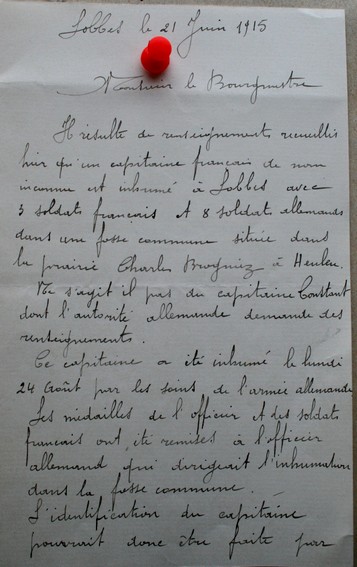 Lobbes le 21 Juin 1915
Monsieur le Bourgmestre
Il résulte de renseignements recueillis
hier qu'un capitaine français de nom
inconnu est inhumé à Lobbes avec
3 soldats français et 8 soldats allemands
dans une fosse commune située dans
la prairie Charles Brogniez à Heuleu.
Ne s'agit il pas du capitaine Constant
dont l'autorité allemande demande des
renseignements.
Ce capitaine a été inhumé le lundi
24 Août par les soins de l'armée allemande
Les médailles de l'officier et des soldats
français ont été remises à l'officier
allemand qui dirigeait l'inhumation
dans la fosse commune.
L'identification du capitaine
pourrait donc être faite par